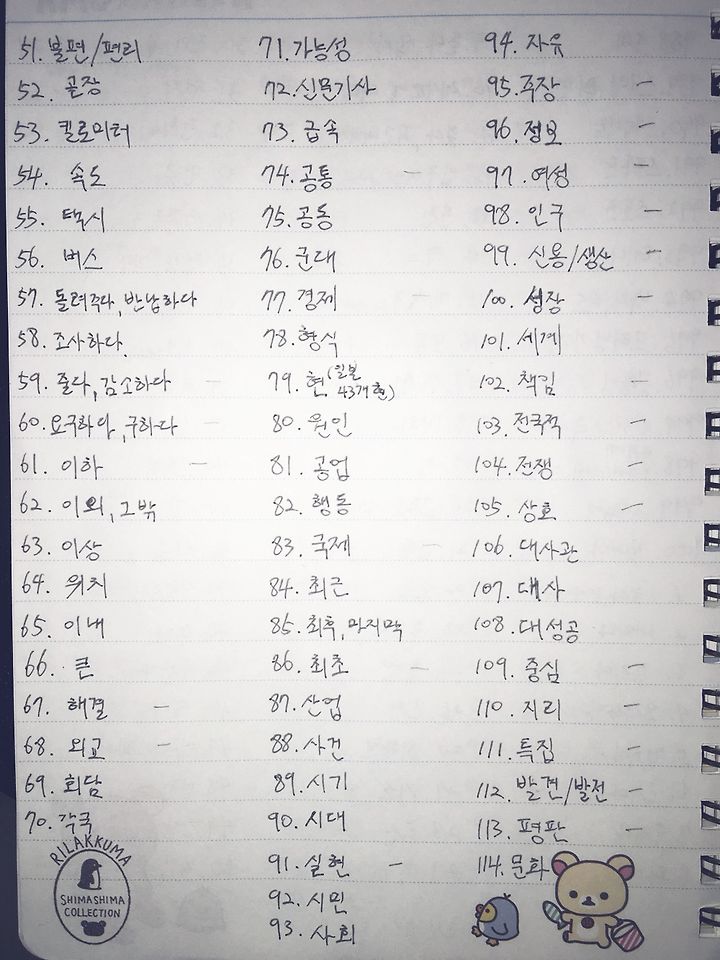 51. 불편/편리
52. 골장
53. 킬로미터
54. 속도
55. 택시
56. 버스
57. 돌려주다, 반납하다
58. 조사하다.
59. 줄다, 감소하다 -
60. 요구하다, 구하다 -
61. 이하 -
62. 이외, 그밖
63. 이상
64. 위치
65. 이내
66. 큰
67. 해결 -
68. 외교 -
69. 회담
70. 각국
RILAKKUMA
SHIMASHIMA
COLLECTION
71. 가능성
72. 신문기사
73. 급속
74. 공통 -
75. 공동
76. 군대
77. 경제 -
78. 형식
79. 현 (일본 43개 현)
80. 원인
81. 공업
82. 행동
83. 국제 -
84. 최근
85. 최후, 마지막
86. 최초 -
87. 산업
88. 사건
89. 시기
90. 시대
91. 실현 -
92. 시민
93. 사회
94. 자유
95. 주장 -
96. 정보 -
97. 여성
98. 인구 -
99. 신용/생산 -
100. 성장 -
101. 세계
102. 책임 -
103. 전국적 -
104. 전쟁 -
105. 상호 -
106. 대사관
107. 대사
108. 대성공
109. 중심 -
110. 지리 -
111. 특집 -
112. 발견/발전 -
113. 평판 -
114. 문화